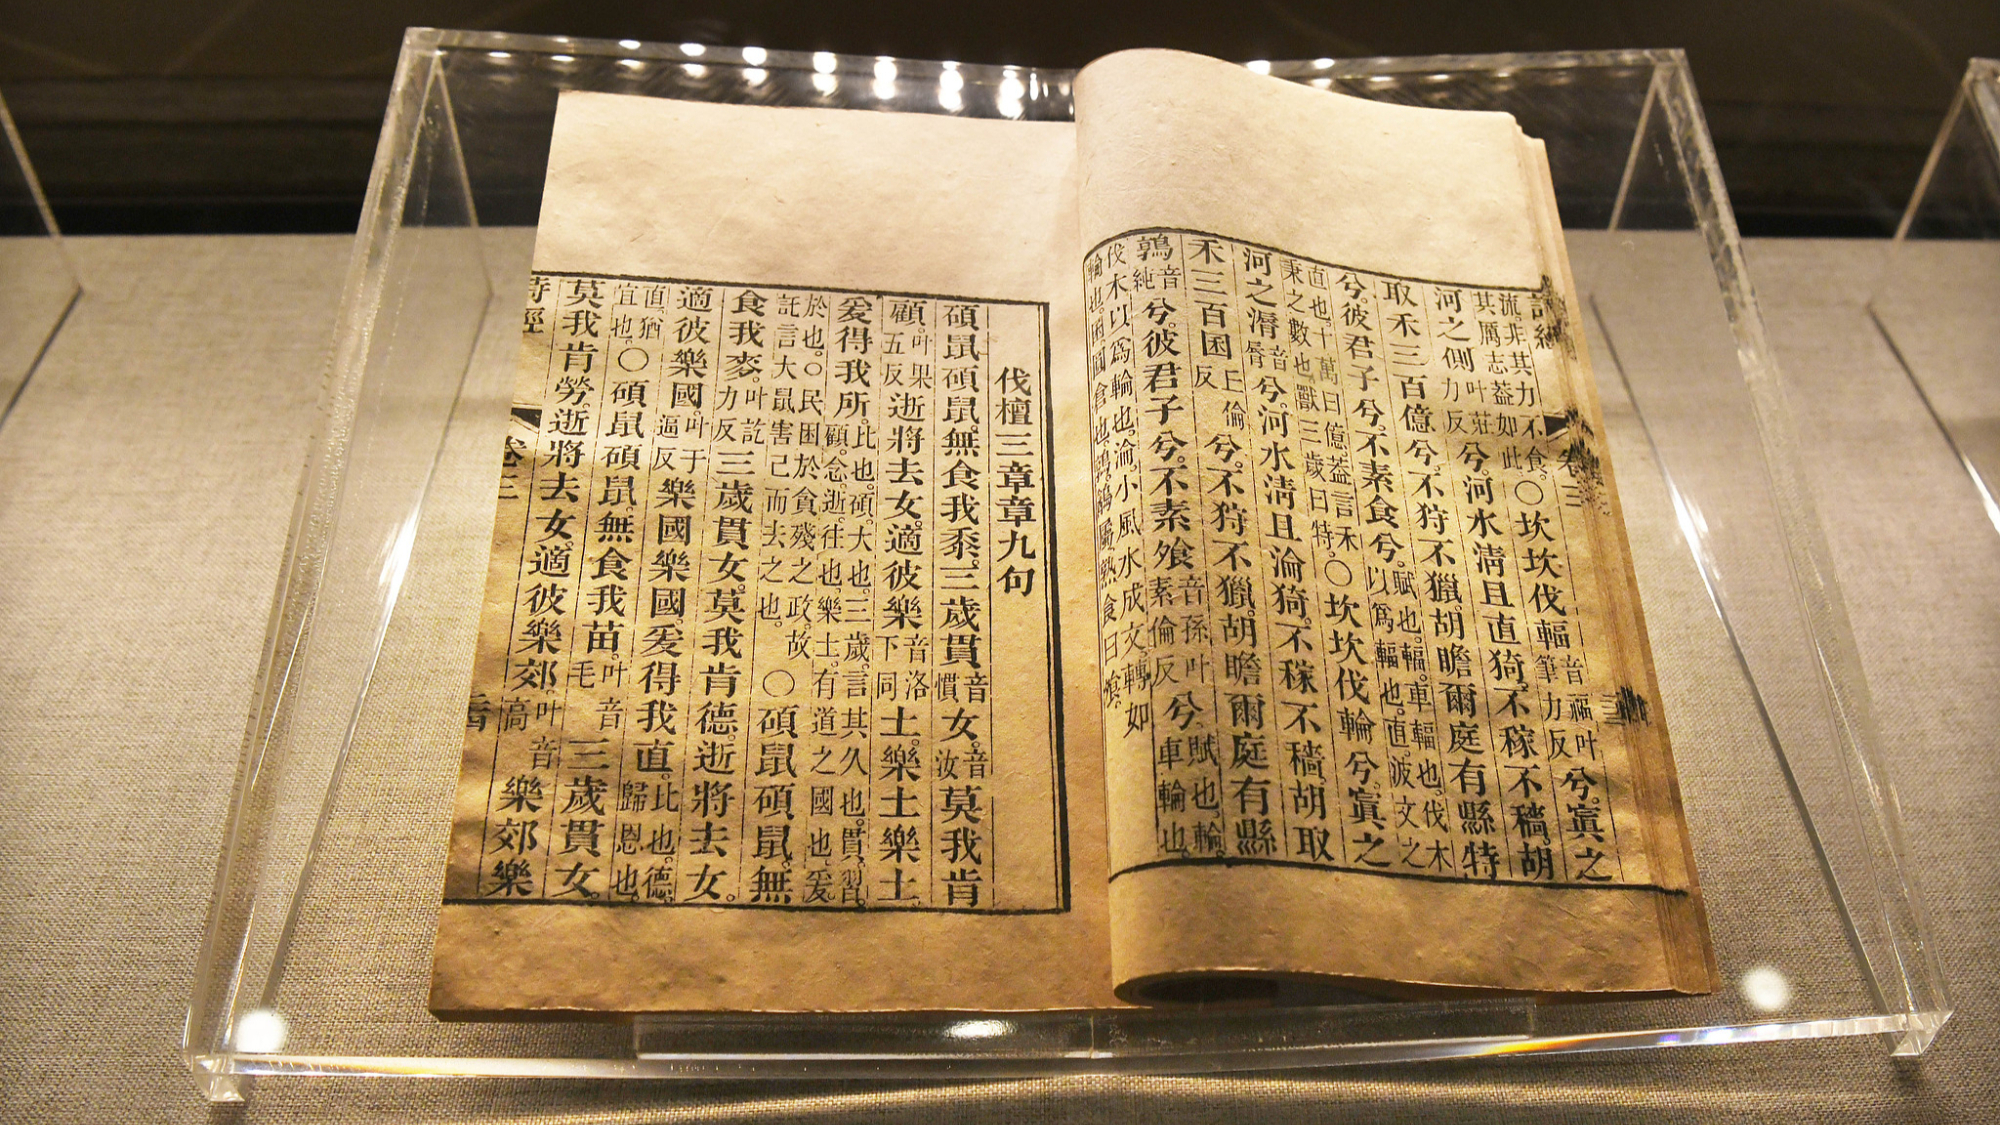 詩經 卷三
流。非其力不食。其厲志葢如此。○坎坎伐輻音福叶筆力反兮。寘之
河之側叶莊力反兮。河水清且直猗。不稼不穡。胡
取禾三百億兮。不狩不獵。胡瞻爾庭有縣特
兮。彼君子兮。不素食兮。賦也。輻。車輻也。伐木以爲輻也。直。波文之
直也。十萬曰億。葢言禾秉之數也。獸三歲曰特。○坎坎伐輪兮。寘之
河之漘音脣兮。河水清且淪猗。不稼不穡。胡取
禾三百囷丘倫反兮。不狩不獵。胡瞻爾庭有縣
鶉音純兮。彼君子兮。不素飧音孫叶素倫反兮。賦也。輪。車輪也。
伐木以爲輪也。淪。小風水成文。轉如輪也。囷。圓倉也。鶉。屬。熟食曰飧。
伐檀三章章九句
碩鼠碩鼠。無食我黍。三歲貫音慣女。音汝莫我肯
顧。叶果五反逝將去女。適彼樂音洛下同土。樂土樂土。
爰得我所。比也。碩。大也。三歲。言其久也。貫。習。顧。念。逝。往也。樂土。有道之國也。爰。
於也。○民困於貪殘之政。故託言大鼠害己而去之也。○碩鼠碩鼠。無
食我麥。叶訖力反三歲貫女。莫我肯德。逝將去女。
適彼樂國。叶于逼反樂國樂國。爰得我直。比也。德。歸恩也。
直。猶宜也。○碩鼠碩鼠。無食我苗。叶音毛三歲貫女。
莫我肯勞。逝將去女。適彼樂郊。叶音高樂郊樂
詩經 卷三